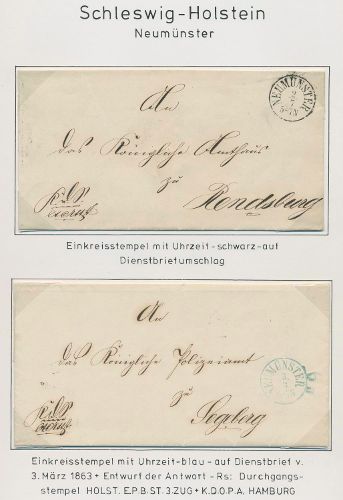 Schleswig-Holstein
Neumünster
An
das Königliche Amthaus
zu
Rendsburg
NEUMÜNSTER
Einkreisstempel mit Uhrzeit-schwarz-auf
Dienstbriefumschlag
An
das Königliche Polizeiamt
zu
Segeberg
NEUMÜNSTER
Einkreisstempel mit Uhrzeit-blau-auf Dienstbrief v.
3. März 1863 + Entwurf der Antwort - Rs: Durchgangs-
stempel HOLST. E.P.B. ST. 3. ZUG + K.D.O.P.A. HAMBURG